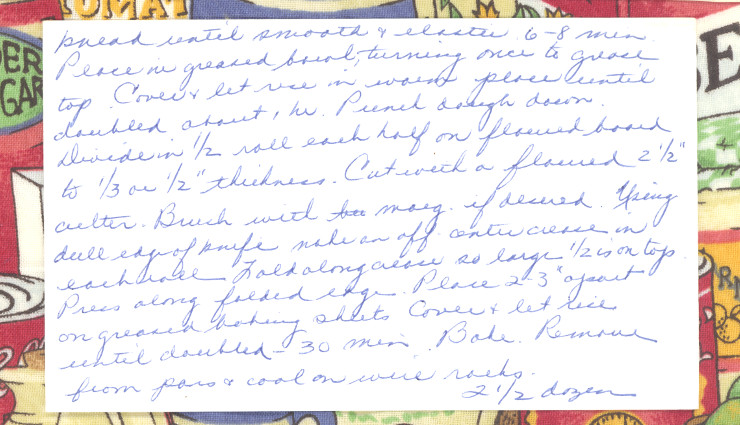 TOMAT
DER
GAR
SE
knead until smooth & elastic. 6-8 min.
Place in greased bowl, turning once to grease
top. Cover & let rise in warm place until
doubled, about 1 hr. Punch dough down.
Divide in 1/2 roll each half on floured board
to 1/3 or 1/2" thickness. Cut with a floured 2 1/2"
cutter. Brush with marg. if desired. Using
dull edge of knife make an off center crease in
each roll Fold along crease so large 1/2 is on top.
Press along folded edge. Place 2-3" apart
on greased baking sheets Cover & let rise
until doubled - 30 min. Bake. Remove
from pans & cool on wire racks.
2 1/2 dozen